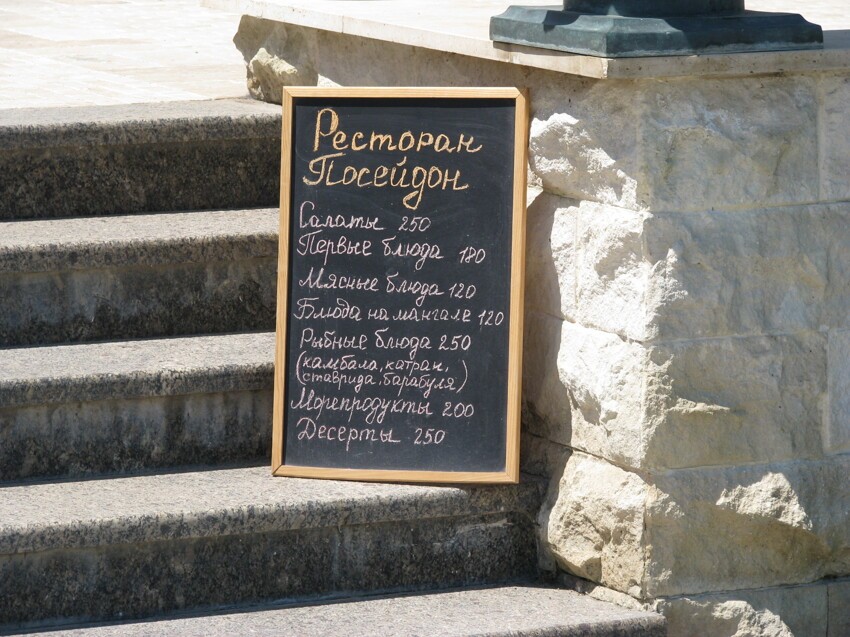 Ресторан
Посейдон
Салаты 250
Первые блюда 180
Мясные блюда 120
Блюда на мангале 120
Рыбные блюда 250
(камбала, катран,
ставрида, барабуля)
Морепродукты 200
Десерты 250